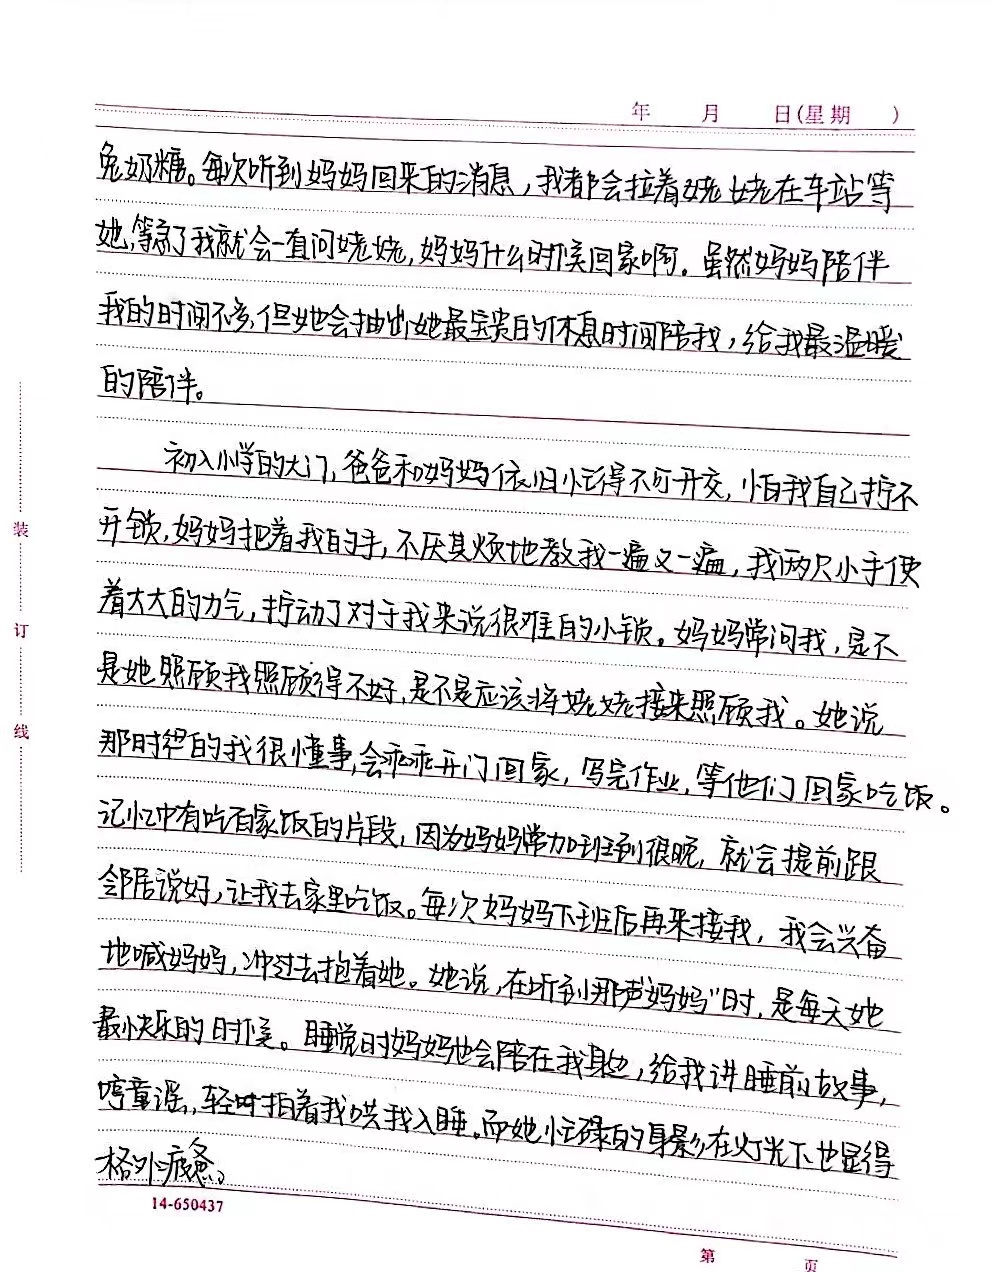 年 月 日(星期 )
兔奶糖。每次听到妈妈回来的消息，我都会拉着姥姥在车站等
她，等急了我就会一直问姥姥，妈妈什么时候回家啊。虽然妈妈陪伴
我的时间不多，但她会抽出她最宝贵的休息时间陪我，给我最温暖
的陪伴。
初入小学的大门，爸爸和妈妈依旧忙得不可开交，怕我自己拧不
开锁，妈妈把着我的手，不厌其烦地教我一遍又一遍，我两只小手使
着大大的力气，拧动了对于我来说很难的小锁。妈妈常问我，是不
是她照顾我照顾得不好，是不是应该将姥姥接来照顾我。她说
那时候的我很懂事，会乖乖开门回家，写完作业，等他们回家吃饭。
记忆中有吃百家饭的片段，因为妈妈常加班到很晚，就会提前跟
邻居说好，让我去家里吃饭。每次妈妈下班后再来接我，我会兴奋
地喊妈妈，冲过去抱着她。她说，在听到那声“妈妈”时，是每天她
最快乐的时候。睡觉时妈妈也会陪在我身边，给我讲睡前故事，
哼童谣，轻呼拍着我哄我入睡。而她忙碌的身影在灯光下也显得
格外疲惫。
装
订
线
14-650437
第 页